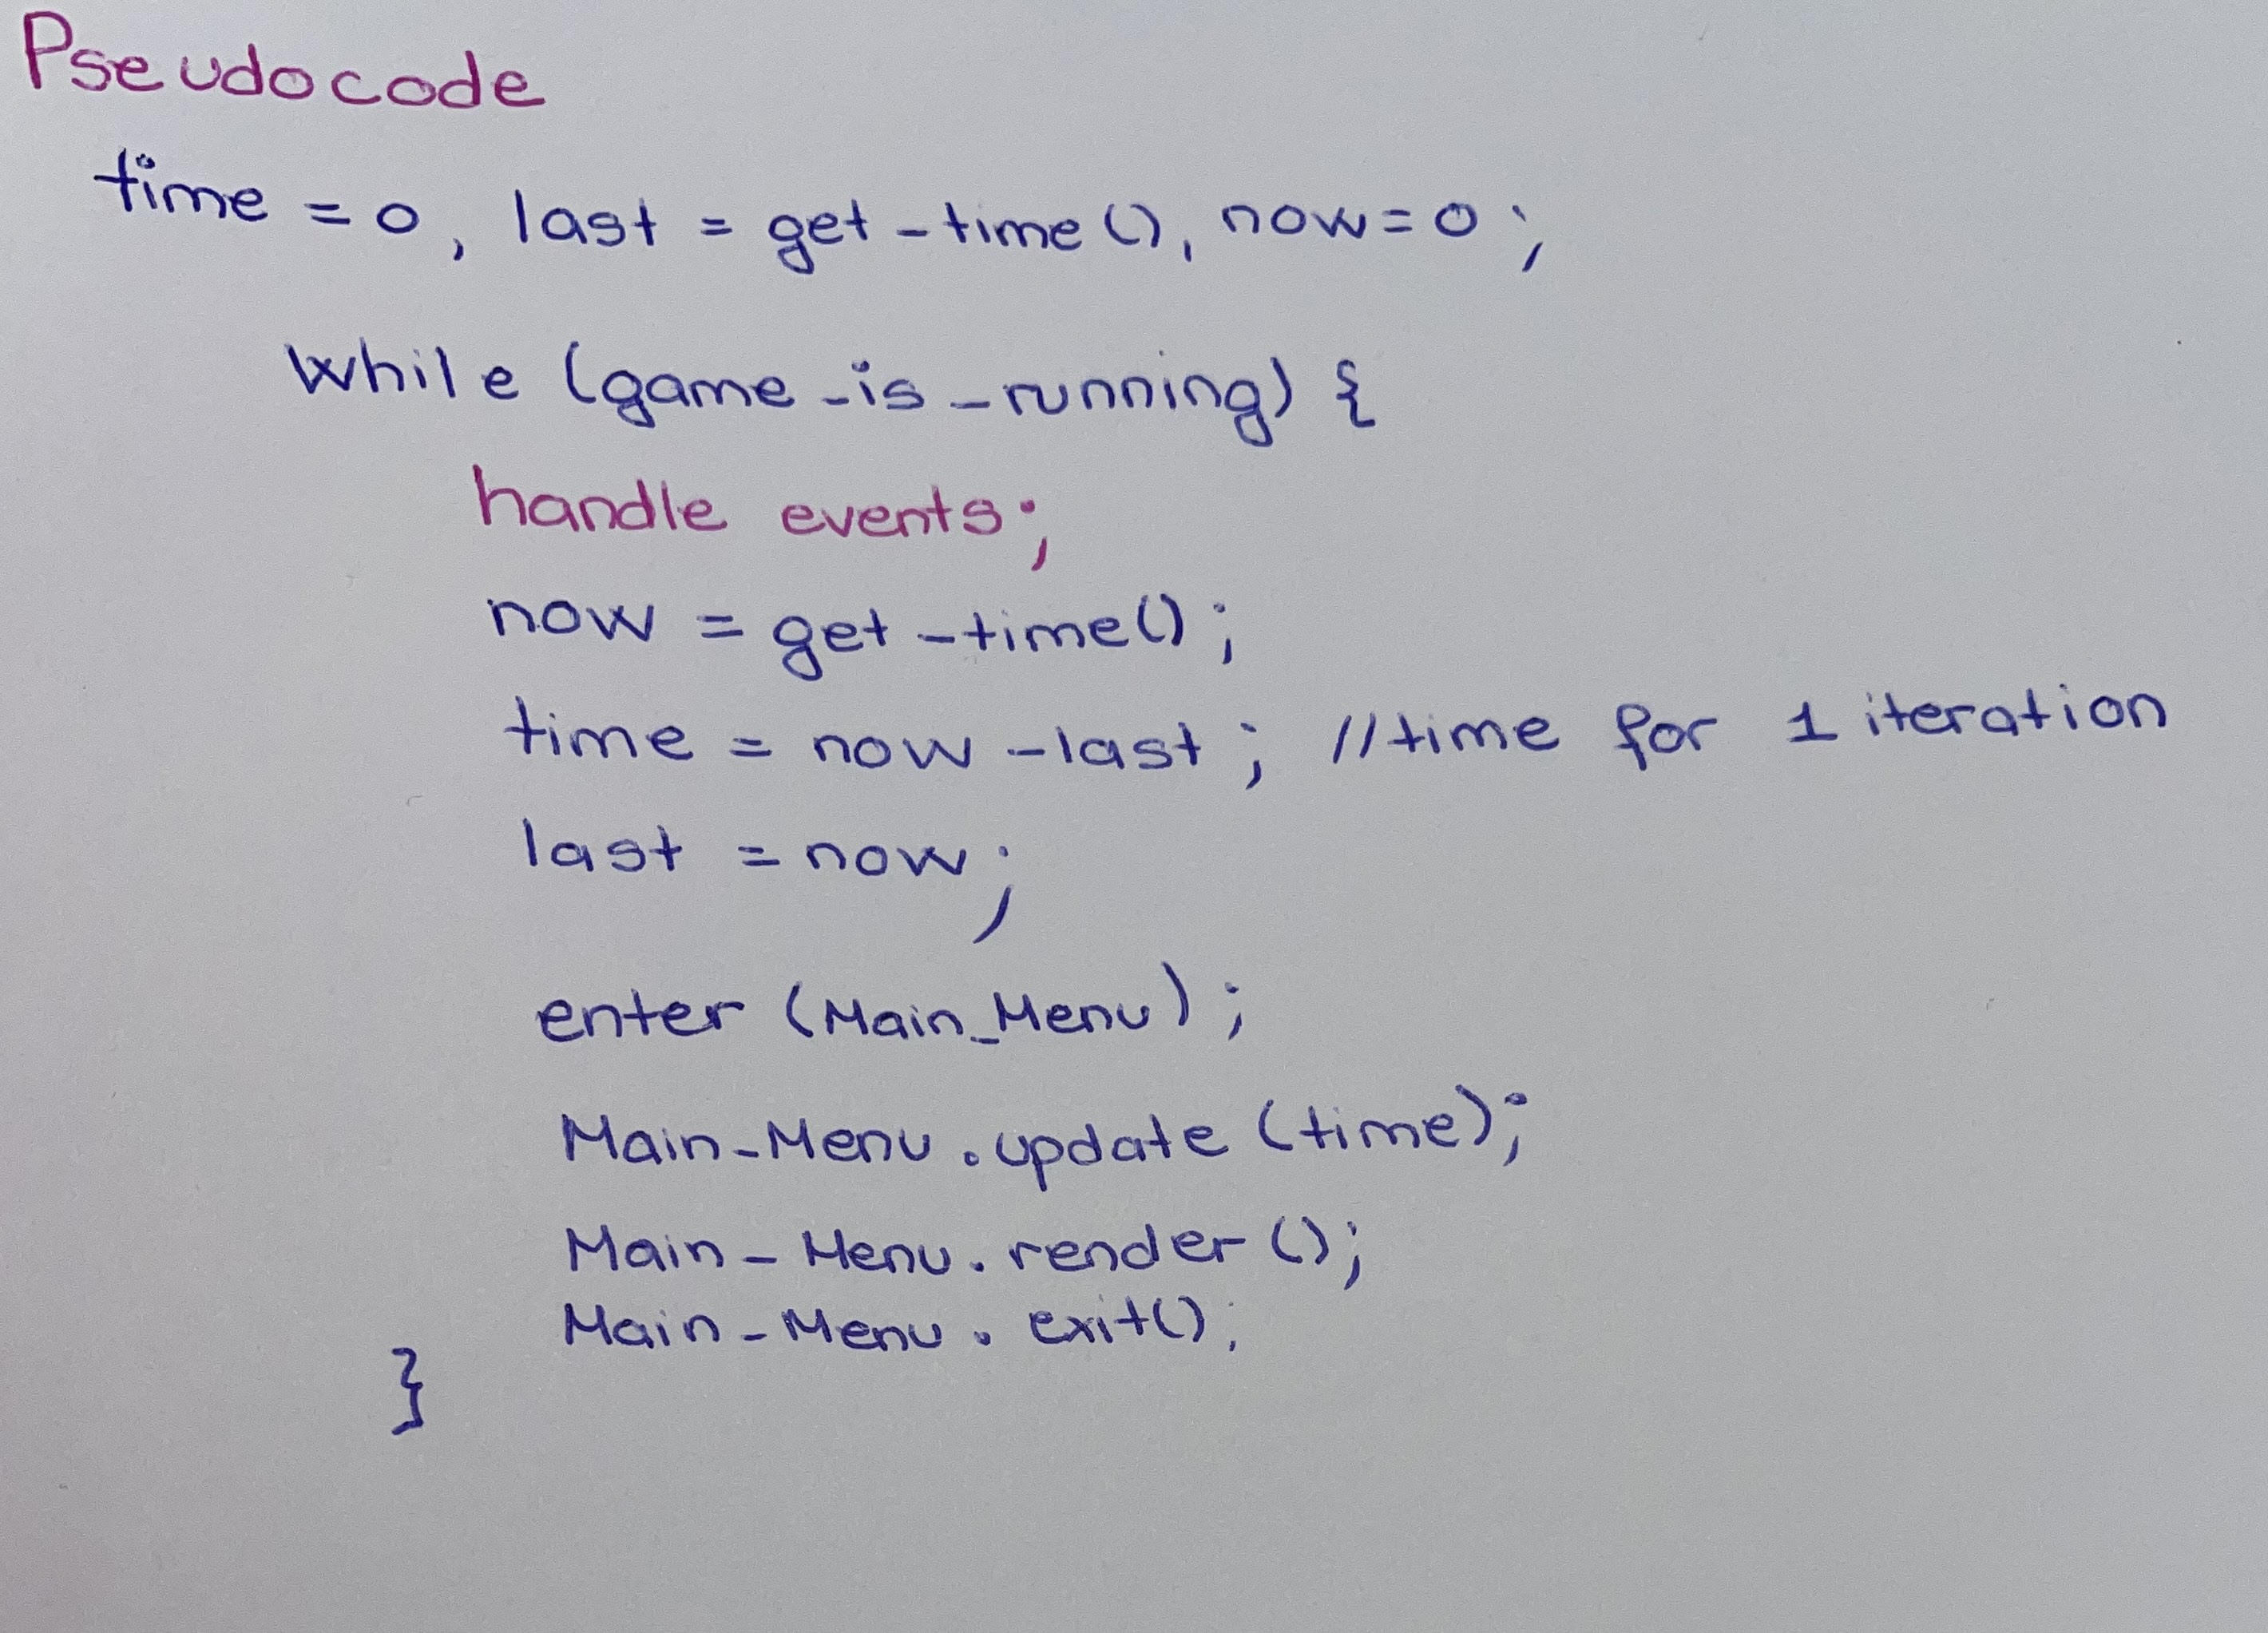 Pseudocode
time = 0, last = get-time(), now=0;
while (game-is-running) {
handle events;
now = get-time();
time = now -last; //time for 1 iteration
last = now;
enter (Main_Menu);
Main-Menu.update (time);
Main-Menu.render();
Main-Menu.exit();
}